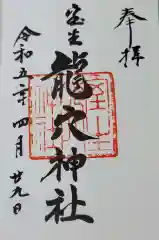 奉拝
室生
龍穴神社
令和五年四月廿九日